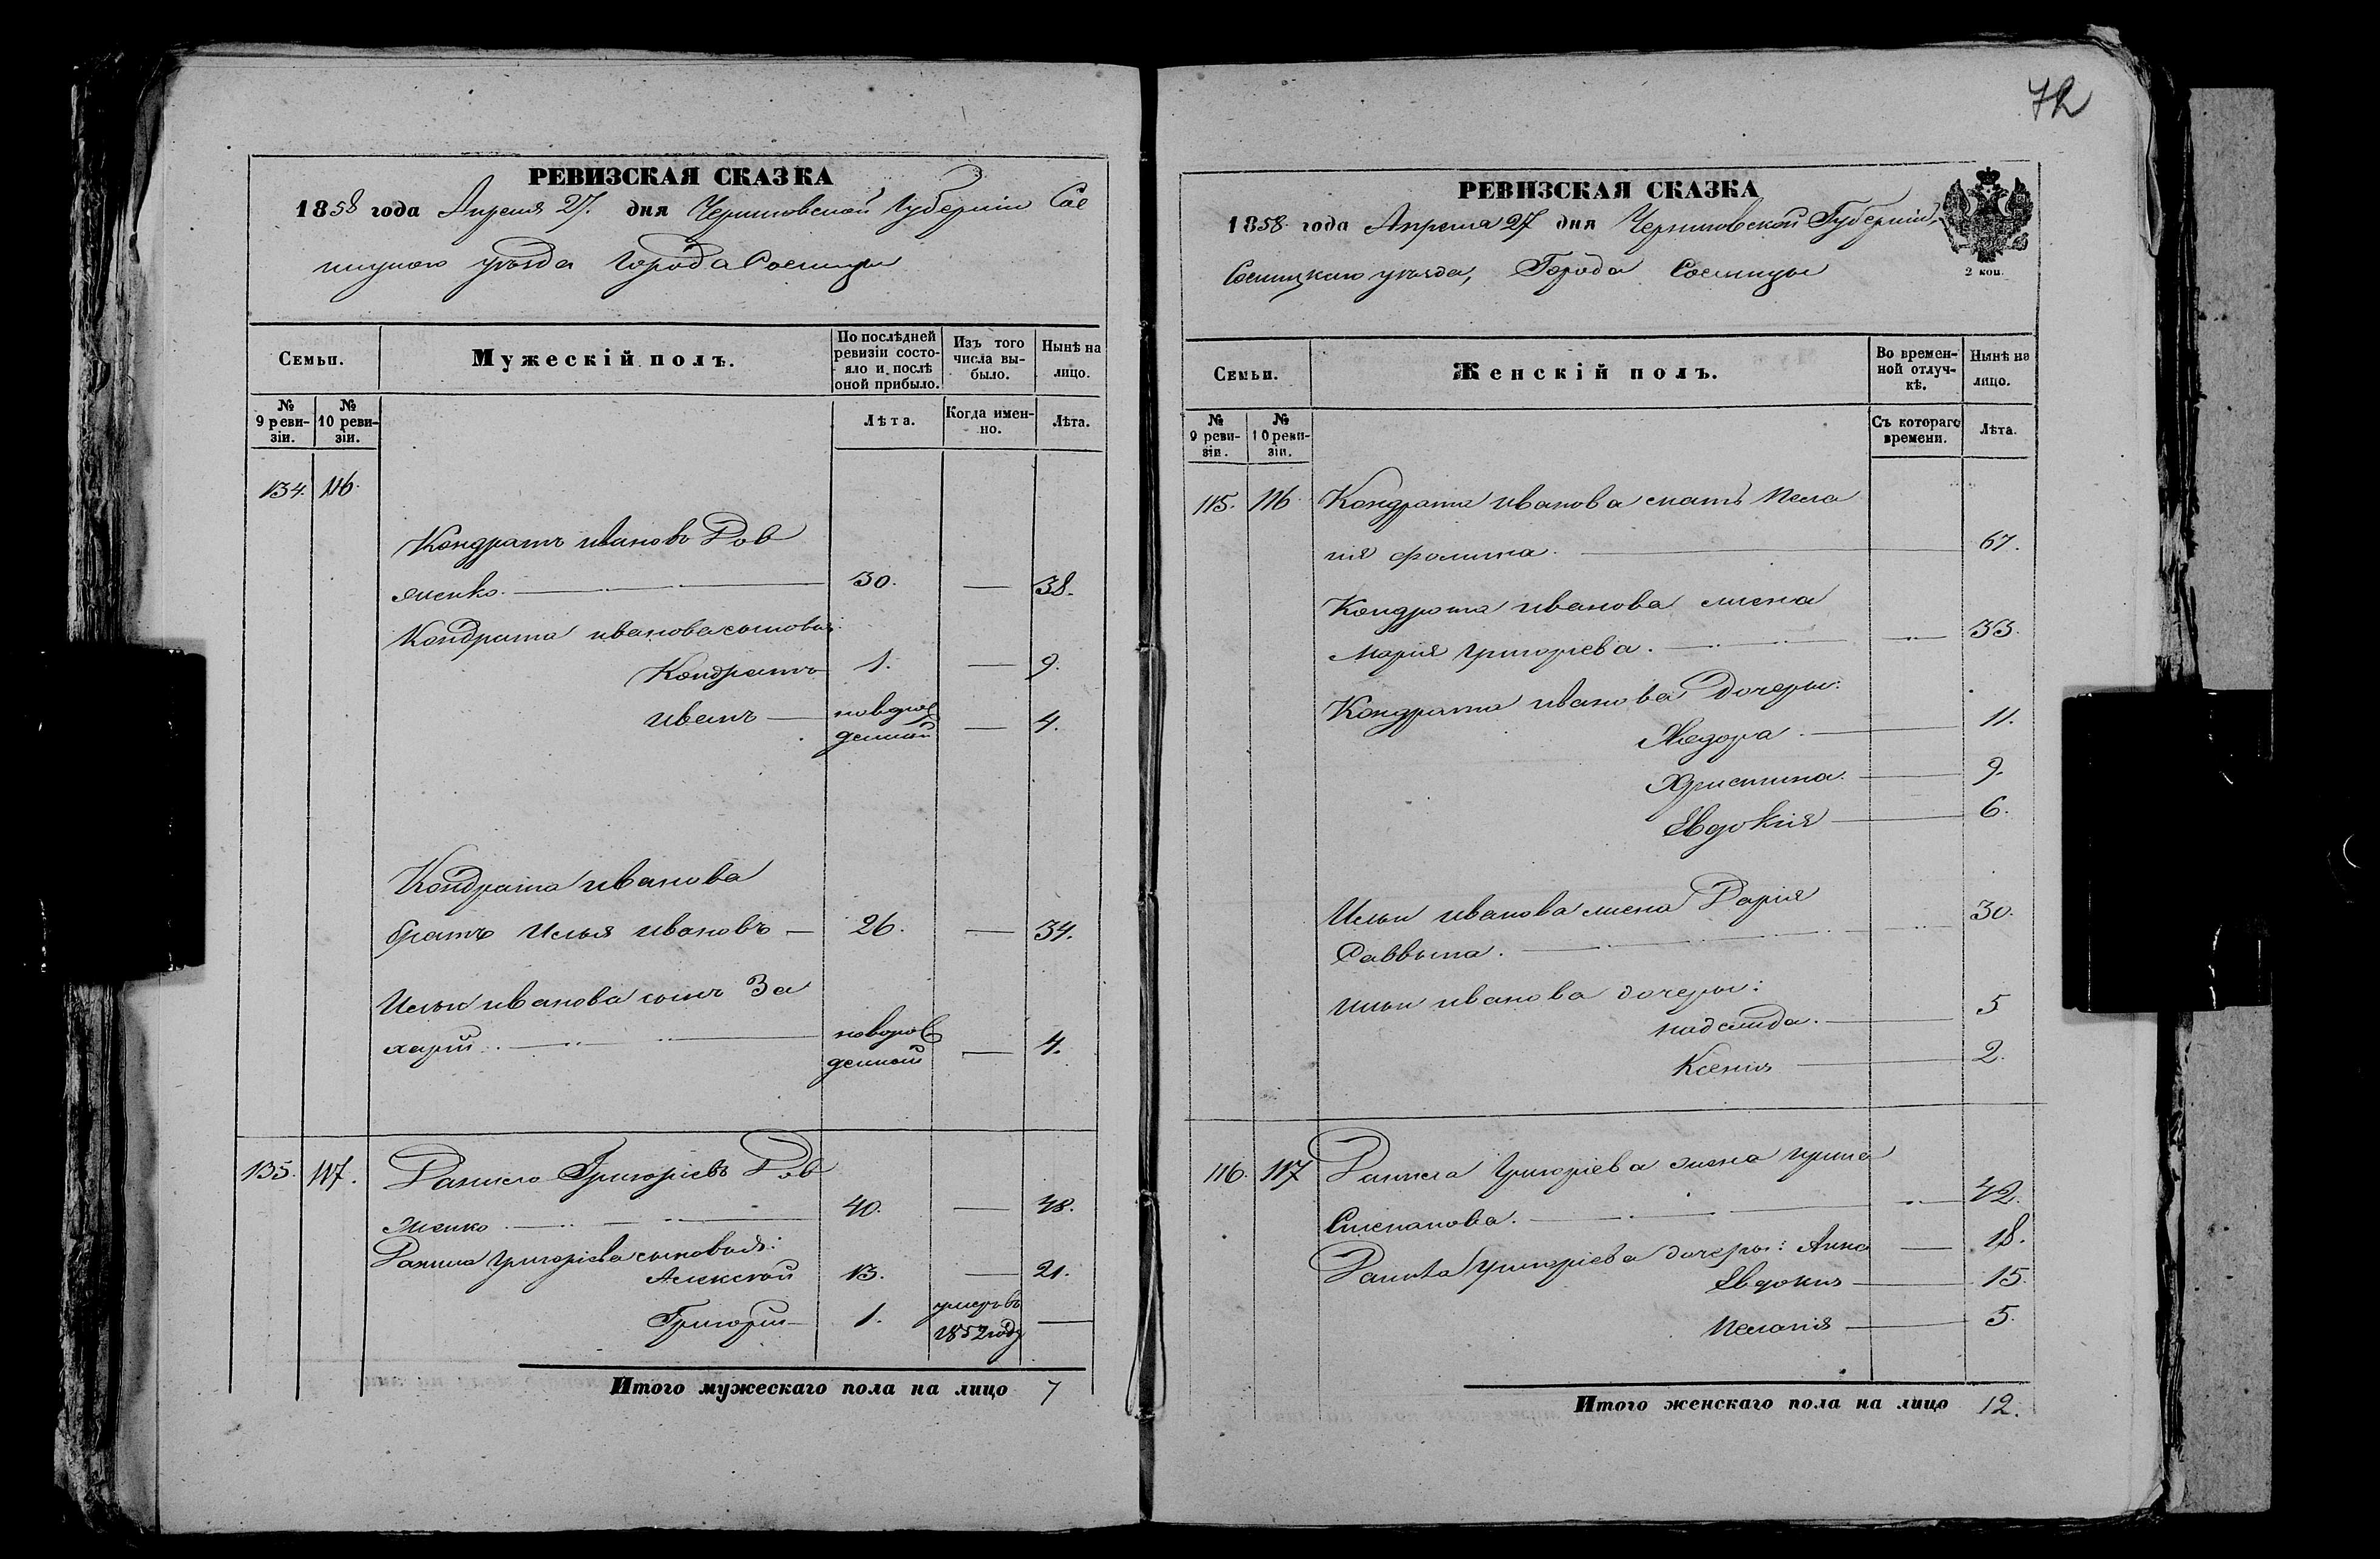 РЕВИЗСКАЯ СКАЗКА
1858 года Апреля 27. дня Черниговской Губернии Сос
ницкого уѣзда Города Сосницы
Семьи.
Мужескій полъ.
По послѣдней
ревизіи состо-
яло и послѣ
оной прибыло.
Изъ того
числа вы-
было.
Нынѣ на
лицо.
№
9 реви-
зіи.
№
10 реви-
зіи.
Лѣта.
Когда имен-
но.
Лѣта.
134. 116.
Кондратъ Ивановъ Дов
женко. 30. — 38.
Кондрата Иванова сыновья:
Кондратъ 1. — 9.
Иванъ — новорож
денной — 4.
Кондрата Иванова
братъ Илья Ивановъ — 26. — 34.
Ильи Иванова сынъ За
харій новорож
денной — 4.
135. 117. Данило Григоріевъ Дов
женко 40. — 48.
Данила Григоріева сыновья:
Алексѣй 13. — 21.
Григорій — 1. умеръ въ
1852 году —
Итого мужескаго пола на лицо 7
72
РЕВИЗСКАЯ СКАЗКА
1858 года Апреля 27 дня Черниговской Губерніи,
Сосницкаго уѣзда, Города Сосницы
2 коп.
Семьи.
Женскій полъ.
Во времен-
ной отлуч-
кѣ.
Нынѣ на
лицо.
№
9 реви-
зіи.
№
10 реви-
зіи.
Съ котораго
времени.
Лѣта.
115. 116. Кондрата Иванова мать Пела
гія Фомина. 67.
Кондрата Иванова жена
Марія Григорьева. — 33.
Кондрата Иванова дочери:
Ѳедора. 11.
Христина. 9.
Евдокія 6.
Ильи Иванова жена Дарія 30.
Саввина.
Ильи Иванова дочери:
Надежда. 5
Ксенія 2.
116. 117 Данила Григоріева жена Ирина
Степанова. — 42.
Данила Григоріева дочери: Анна — 18.
Евдокія 15.
Пелагія 5.
Итого женскаго пола на лицо 12.